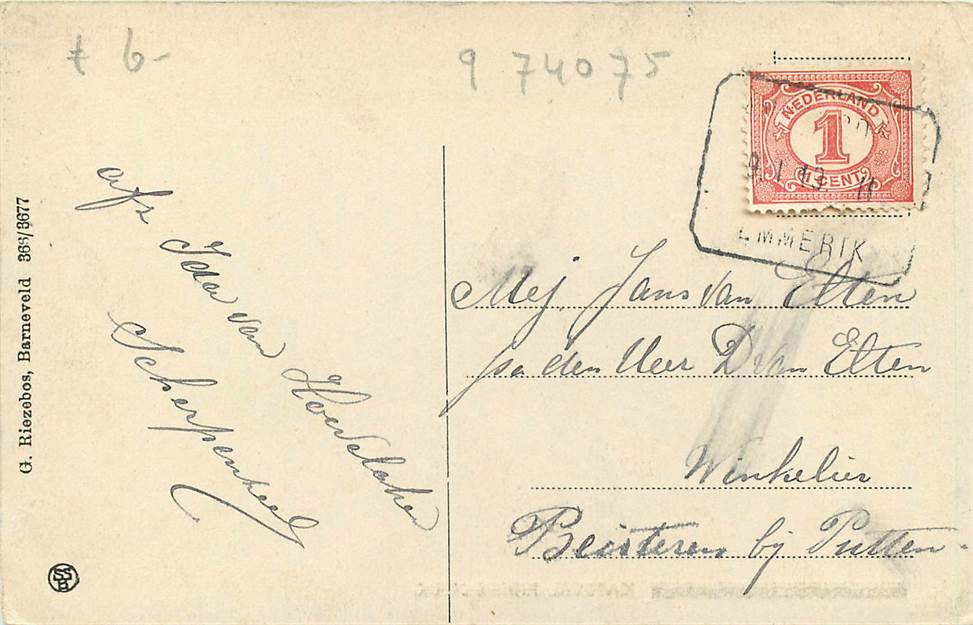 t 6-
9 74075
NEDERLAND
1
CENT
EMMERIK
afz
Ida van Hoevelaken
Scherpenzeel
Mej. Jans van Elten
p/a den Heer D. van Elten
Winkelier
Beisteren bij Putten.
G. Riezebos, Barneveld 363/3677